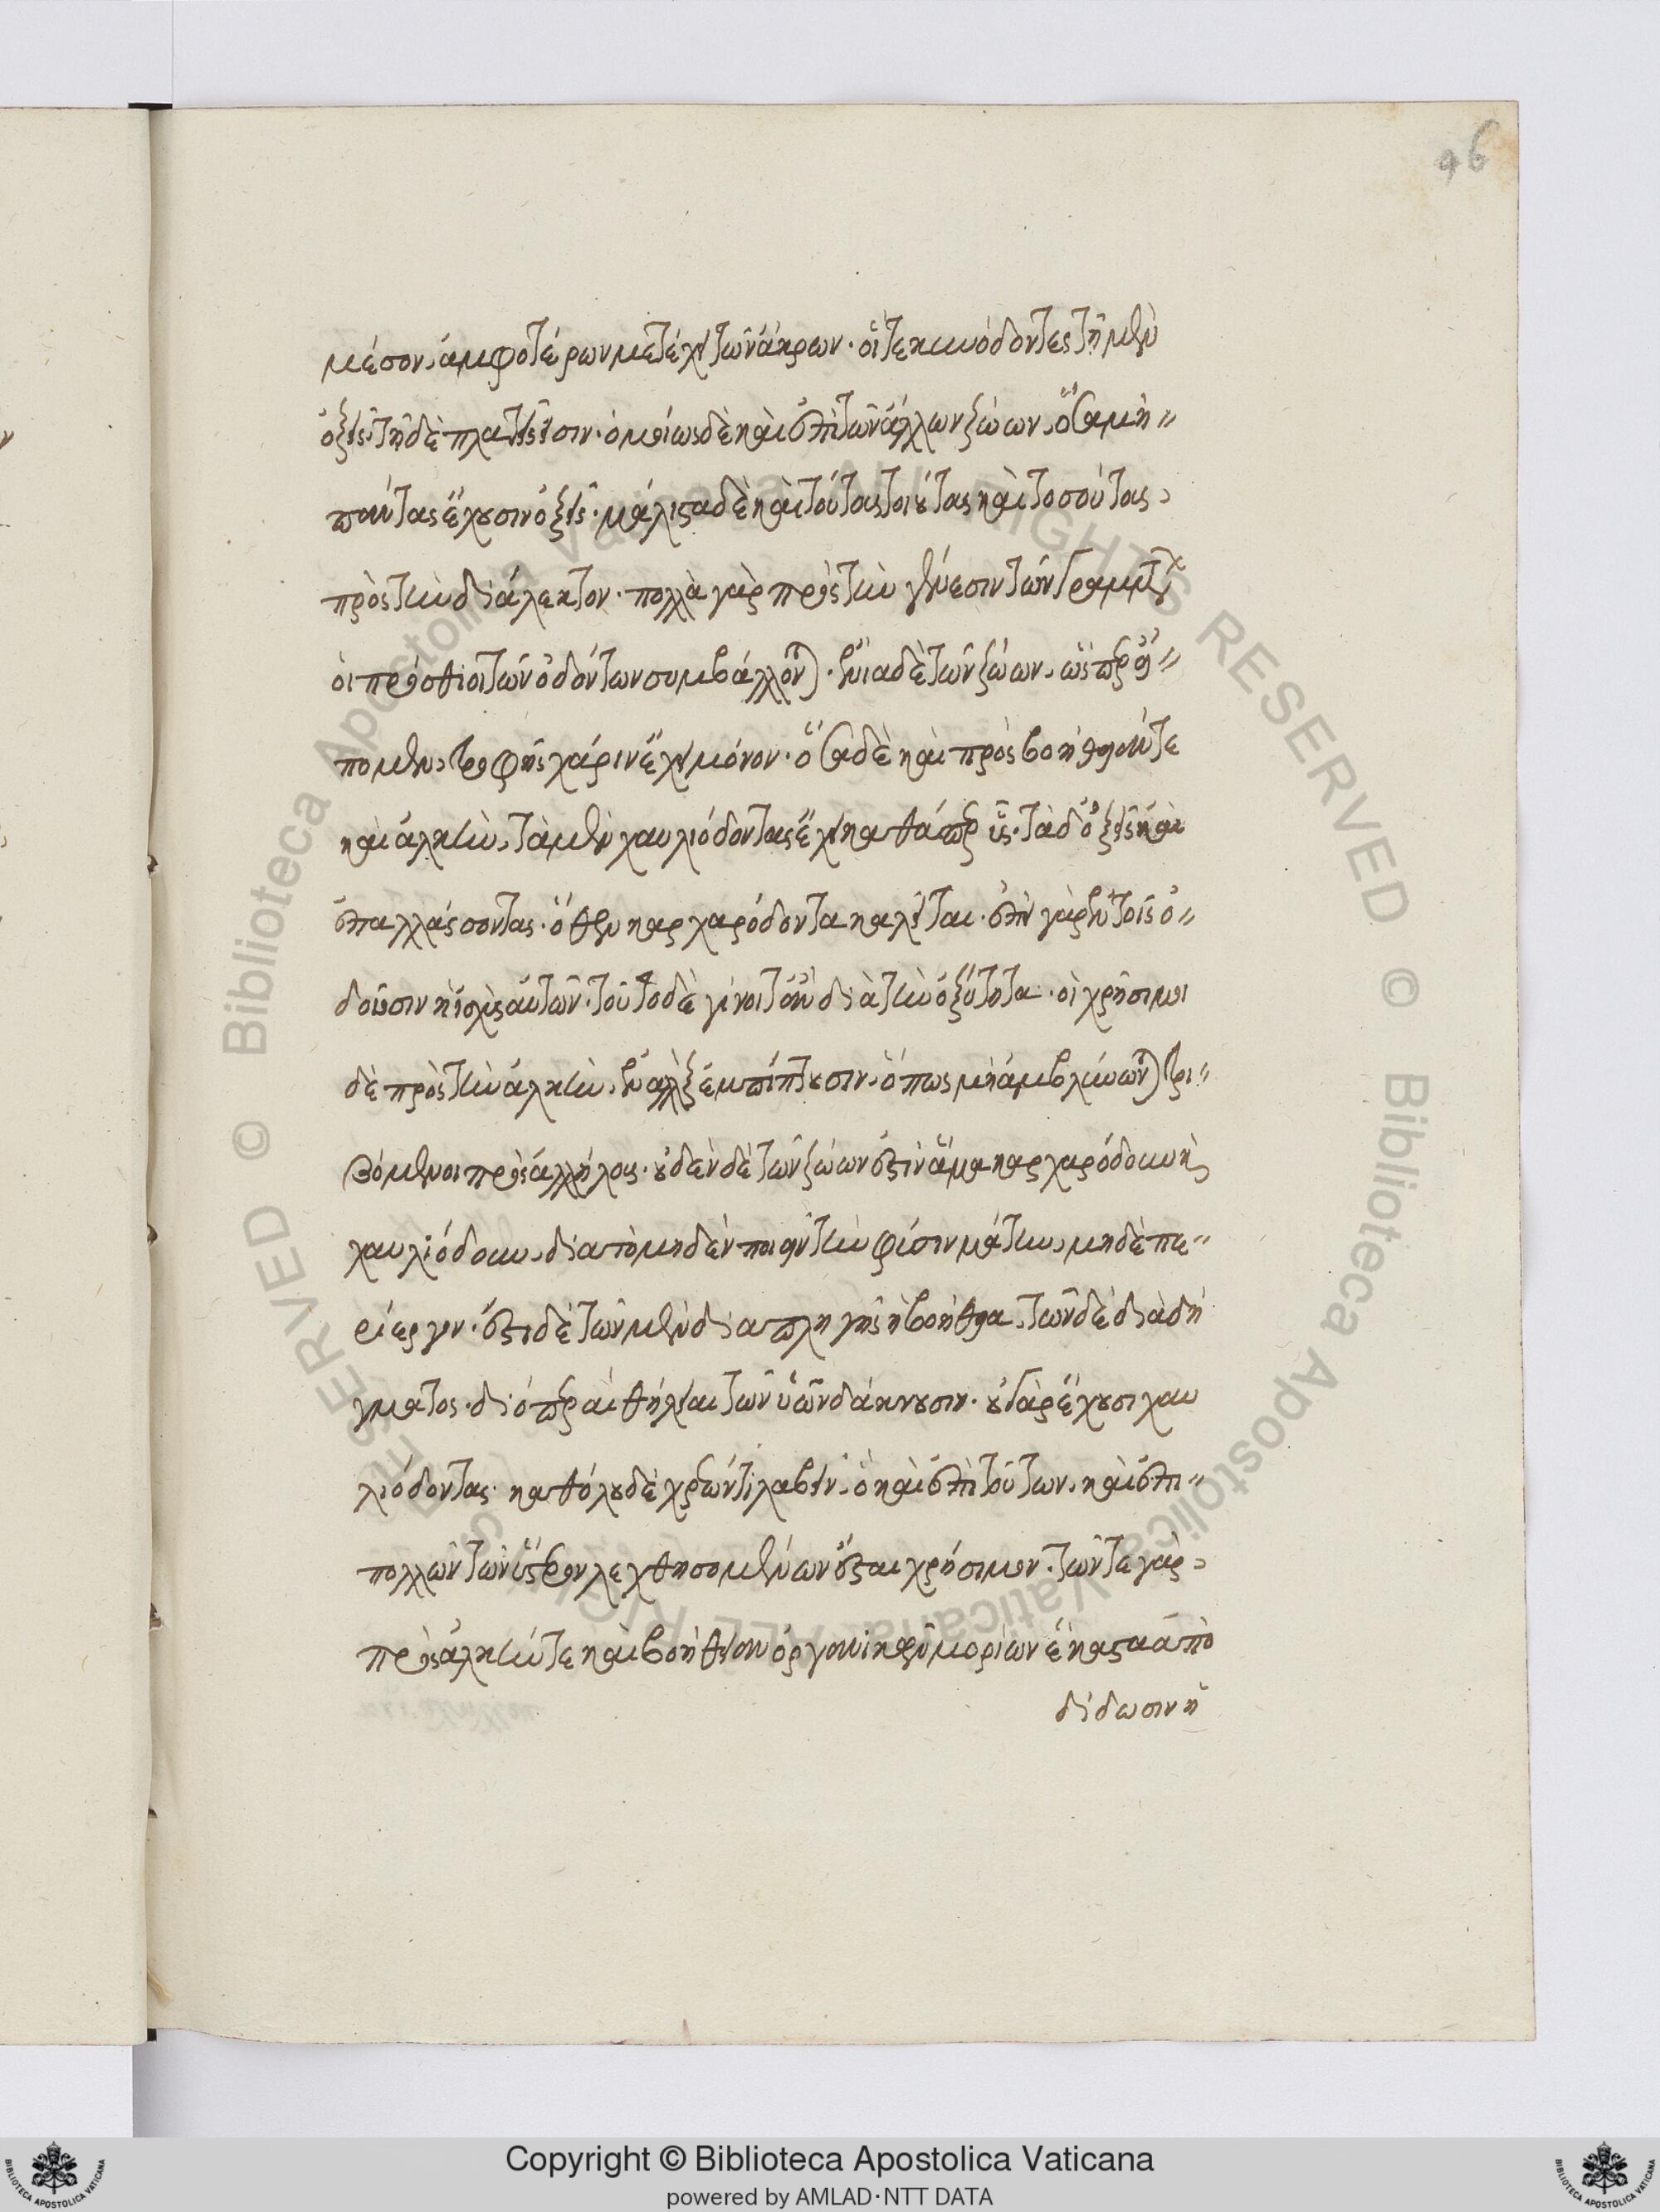 96
μέσον, ἀμφοτέρων μετέχει τῶν ἄκρων· οἵ τε κυνόδοντες τῆ μὲν
ὀξεῖς· τῆ δὲ πλατεῖς εἰσιν· ὁμοίως δὲ καὶ ἐπὶ τῶν ἄλλων ζώων, ὅσα μὴ
πάντας ἔχουσιν ὀξεῖς· μάλιστα δὲ καὶ τούτας τοιούτας καὶ τοσούτας,
πρὸς τὴν διάλεκτον· πολλὰ γὰρ πρὸς τὴν γένεσιν τῶν γραμμάτων
οἱ πρόσθιοι τῶν ὀδόντων συμβάλλονται· ἔνια δὲ τῶν ζώων, ὥσπερ εἴ
πομεν, τροφῆς χάριν ἔχει μόνον· ὅσα δὲ καὶ πρὸς βοήθειάν τε
καὶ ἀλκὴν, τὰ μὲν χαυλιόδοντας ἔχει καθάπερ ὗς· τὰ δ' ὀξεῖς καὶ
ἐπαλλάσσοντας· ὅθεν καρχαρόδοντα καλεῖται· ἐπεὶ γὰρ ἐν τοῖς ὀ
δοῦσιν ἡ ἰσχὺς αὐτῶν· τοῦτο δὲ γίνοιτ' ἂν διὰ τὴν ὀξύτητα· οἱ χρήσιμοι
δὲ πρὸς τὴν ἀλκὴν, ἐναλλὰξ ἐμπίπτουσιν, ὅπως μὴ ἀμβλύνωνται τρι
βόμενοι πρὸς ἀλλήλους· οὐδὲν δὲ τῶν ζώων ἐστὶν ἅμα καρχαρόδουν καὶ
χαυλιόδουν, διὰ τὸ μηδὲν ποιεῖν τὴν φύσιν μάτην, μηδὲ πε
ρίεργον· ἔστι δὲ τῶν μὲν διὰ πληγῆς ἡ βοήθεια, τῶν δὲ διὰ δή
γματος· διόπερ αἱ θήλειαι τῶν ὑῶν δάκνουσιν· οὐ γὰρ ἔχουσι χαυ
λιόδοντας· καθόλου δὲ χρεών τι λαβεῖν, ὃ καὶ ἐπὶ τούτων, καὶ ἐπὶ
πολλῶν τῶν ὕστερον λεχθησομένων ἔσται χρήσιμον· τῶν τε γὰρ,
πρὸς ἀλκήν τε καὶ βοήθειαν ὀργανικῶν μορίων ἕκαστα ἀπο
δίδωσιν ἡ
Copyright © Biblioteca Apostolica Vaticana
powered by AMLAD·NTT DATA